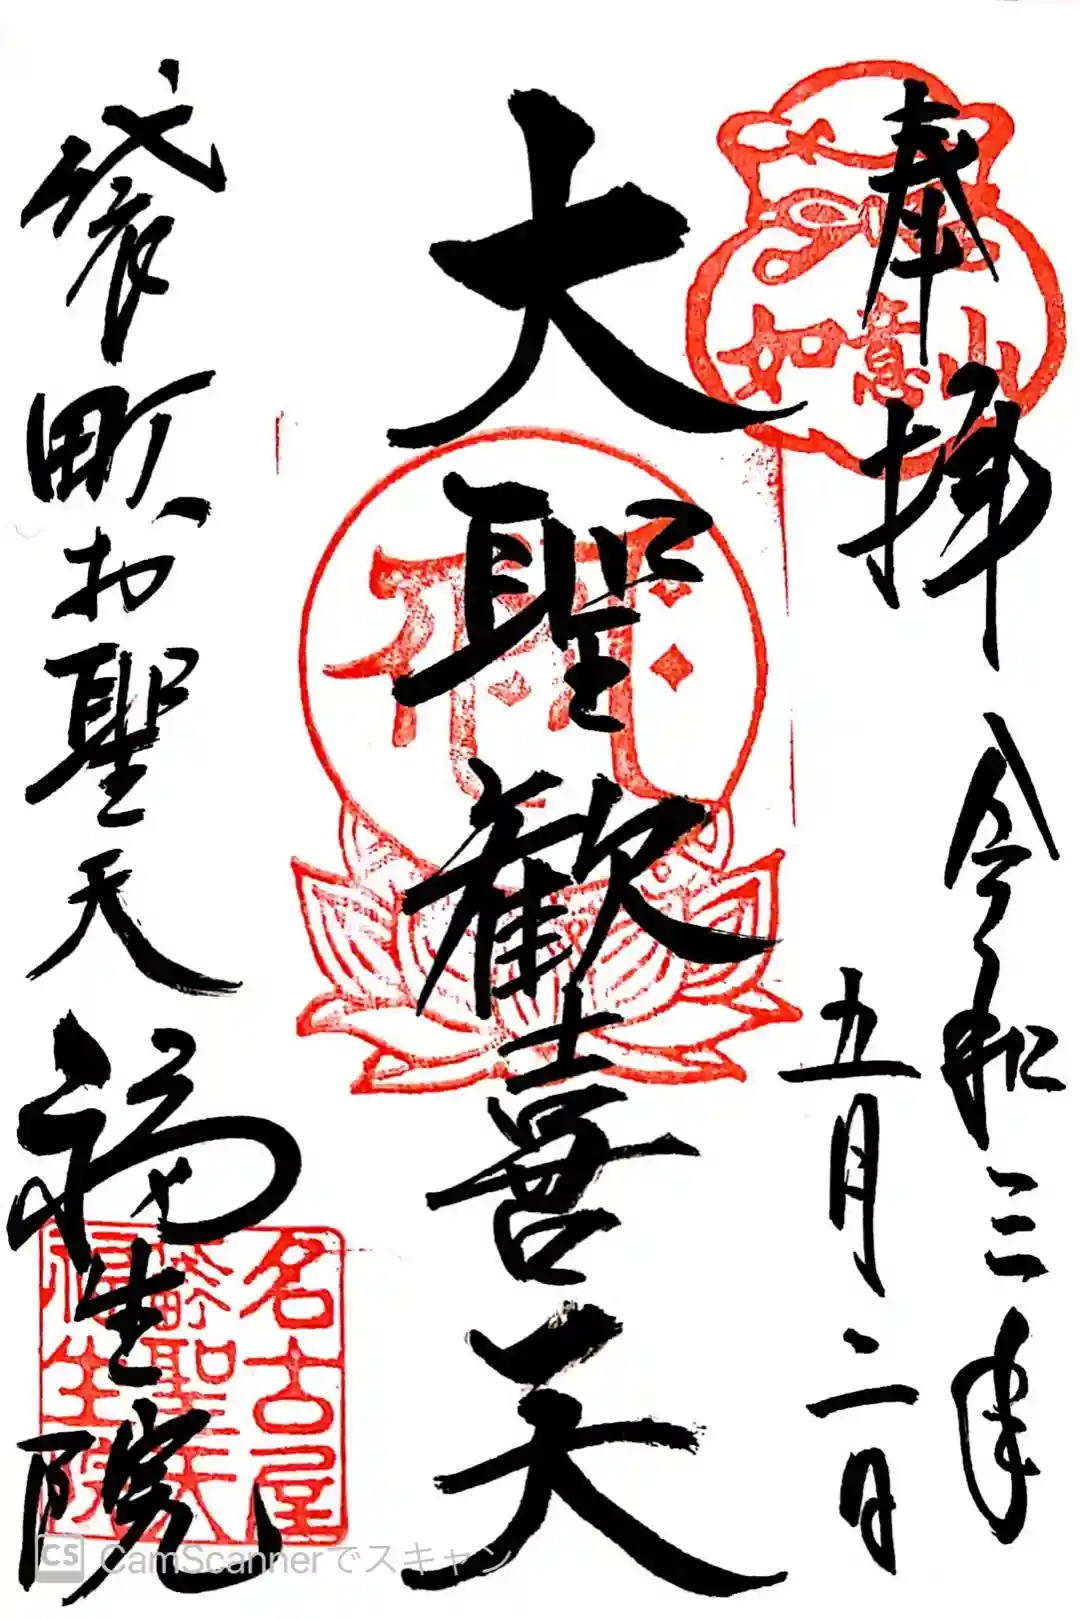 奉拝
令和三年
五月二日
如意山
大聖歓喜天
袋町お聖天
福生院
名古屋
袋町聖天
福生院
CS CamScannerでスキャン